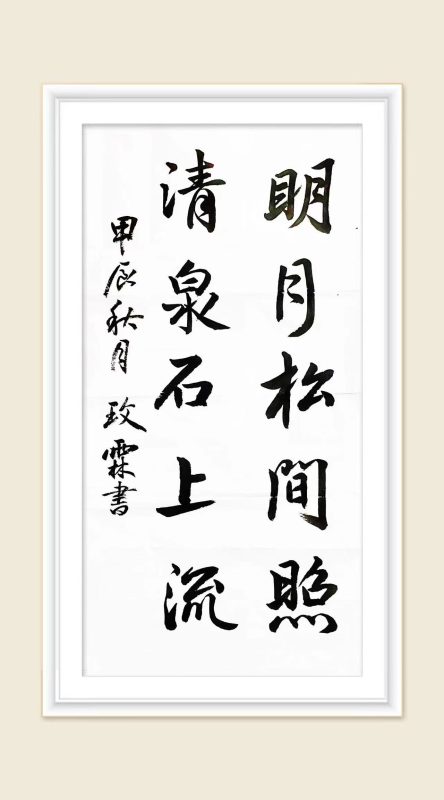 明月松間照
清泉石上流
甲辰秋月 玫霖書